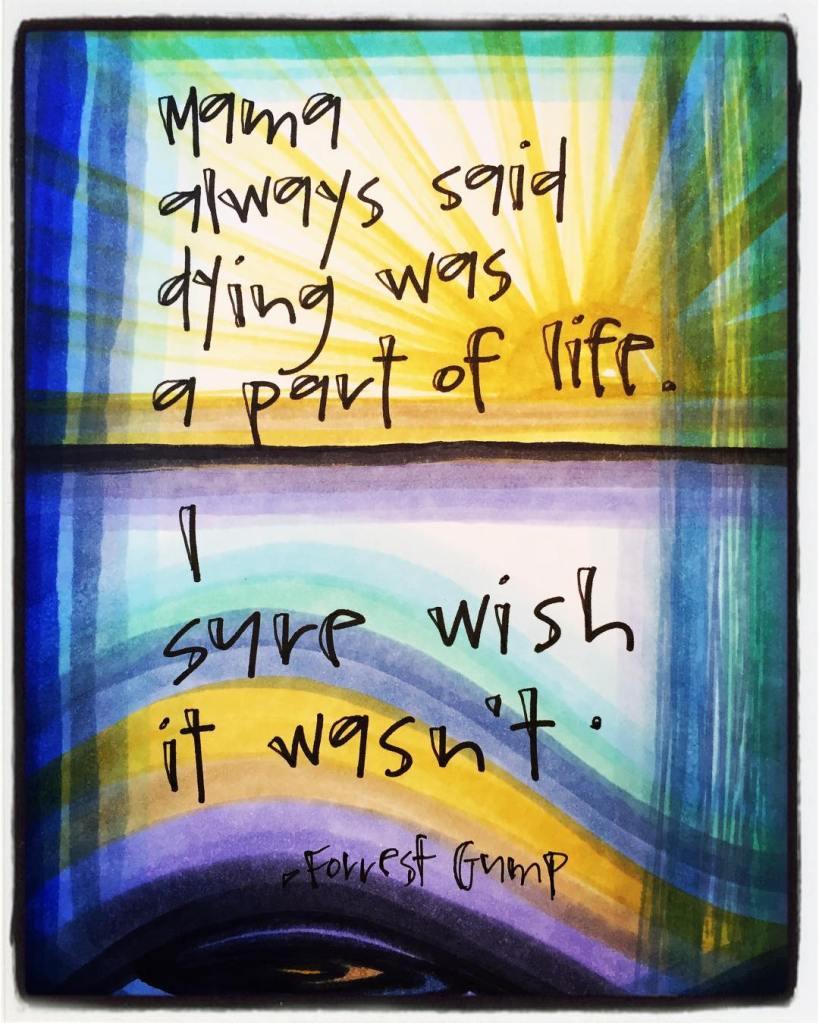 Mama
always said
dying was
a part of life.
I
sure wish
it wasn't.
-Forrest Gump